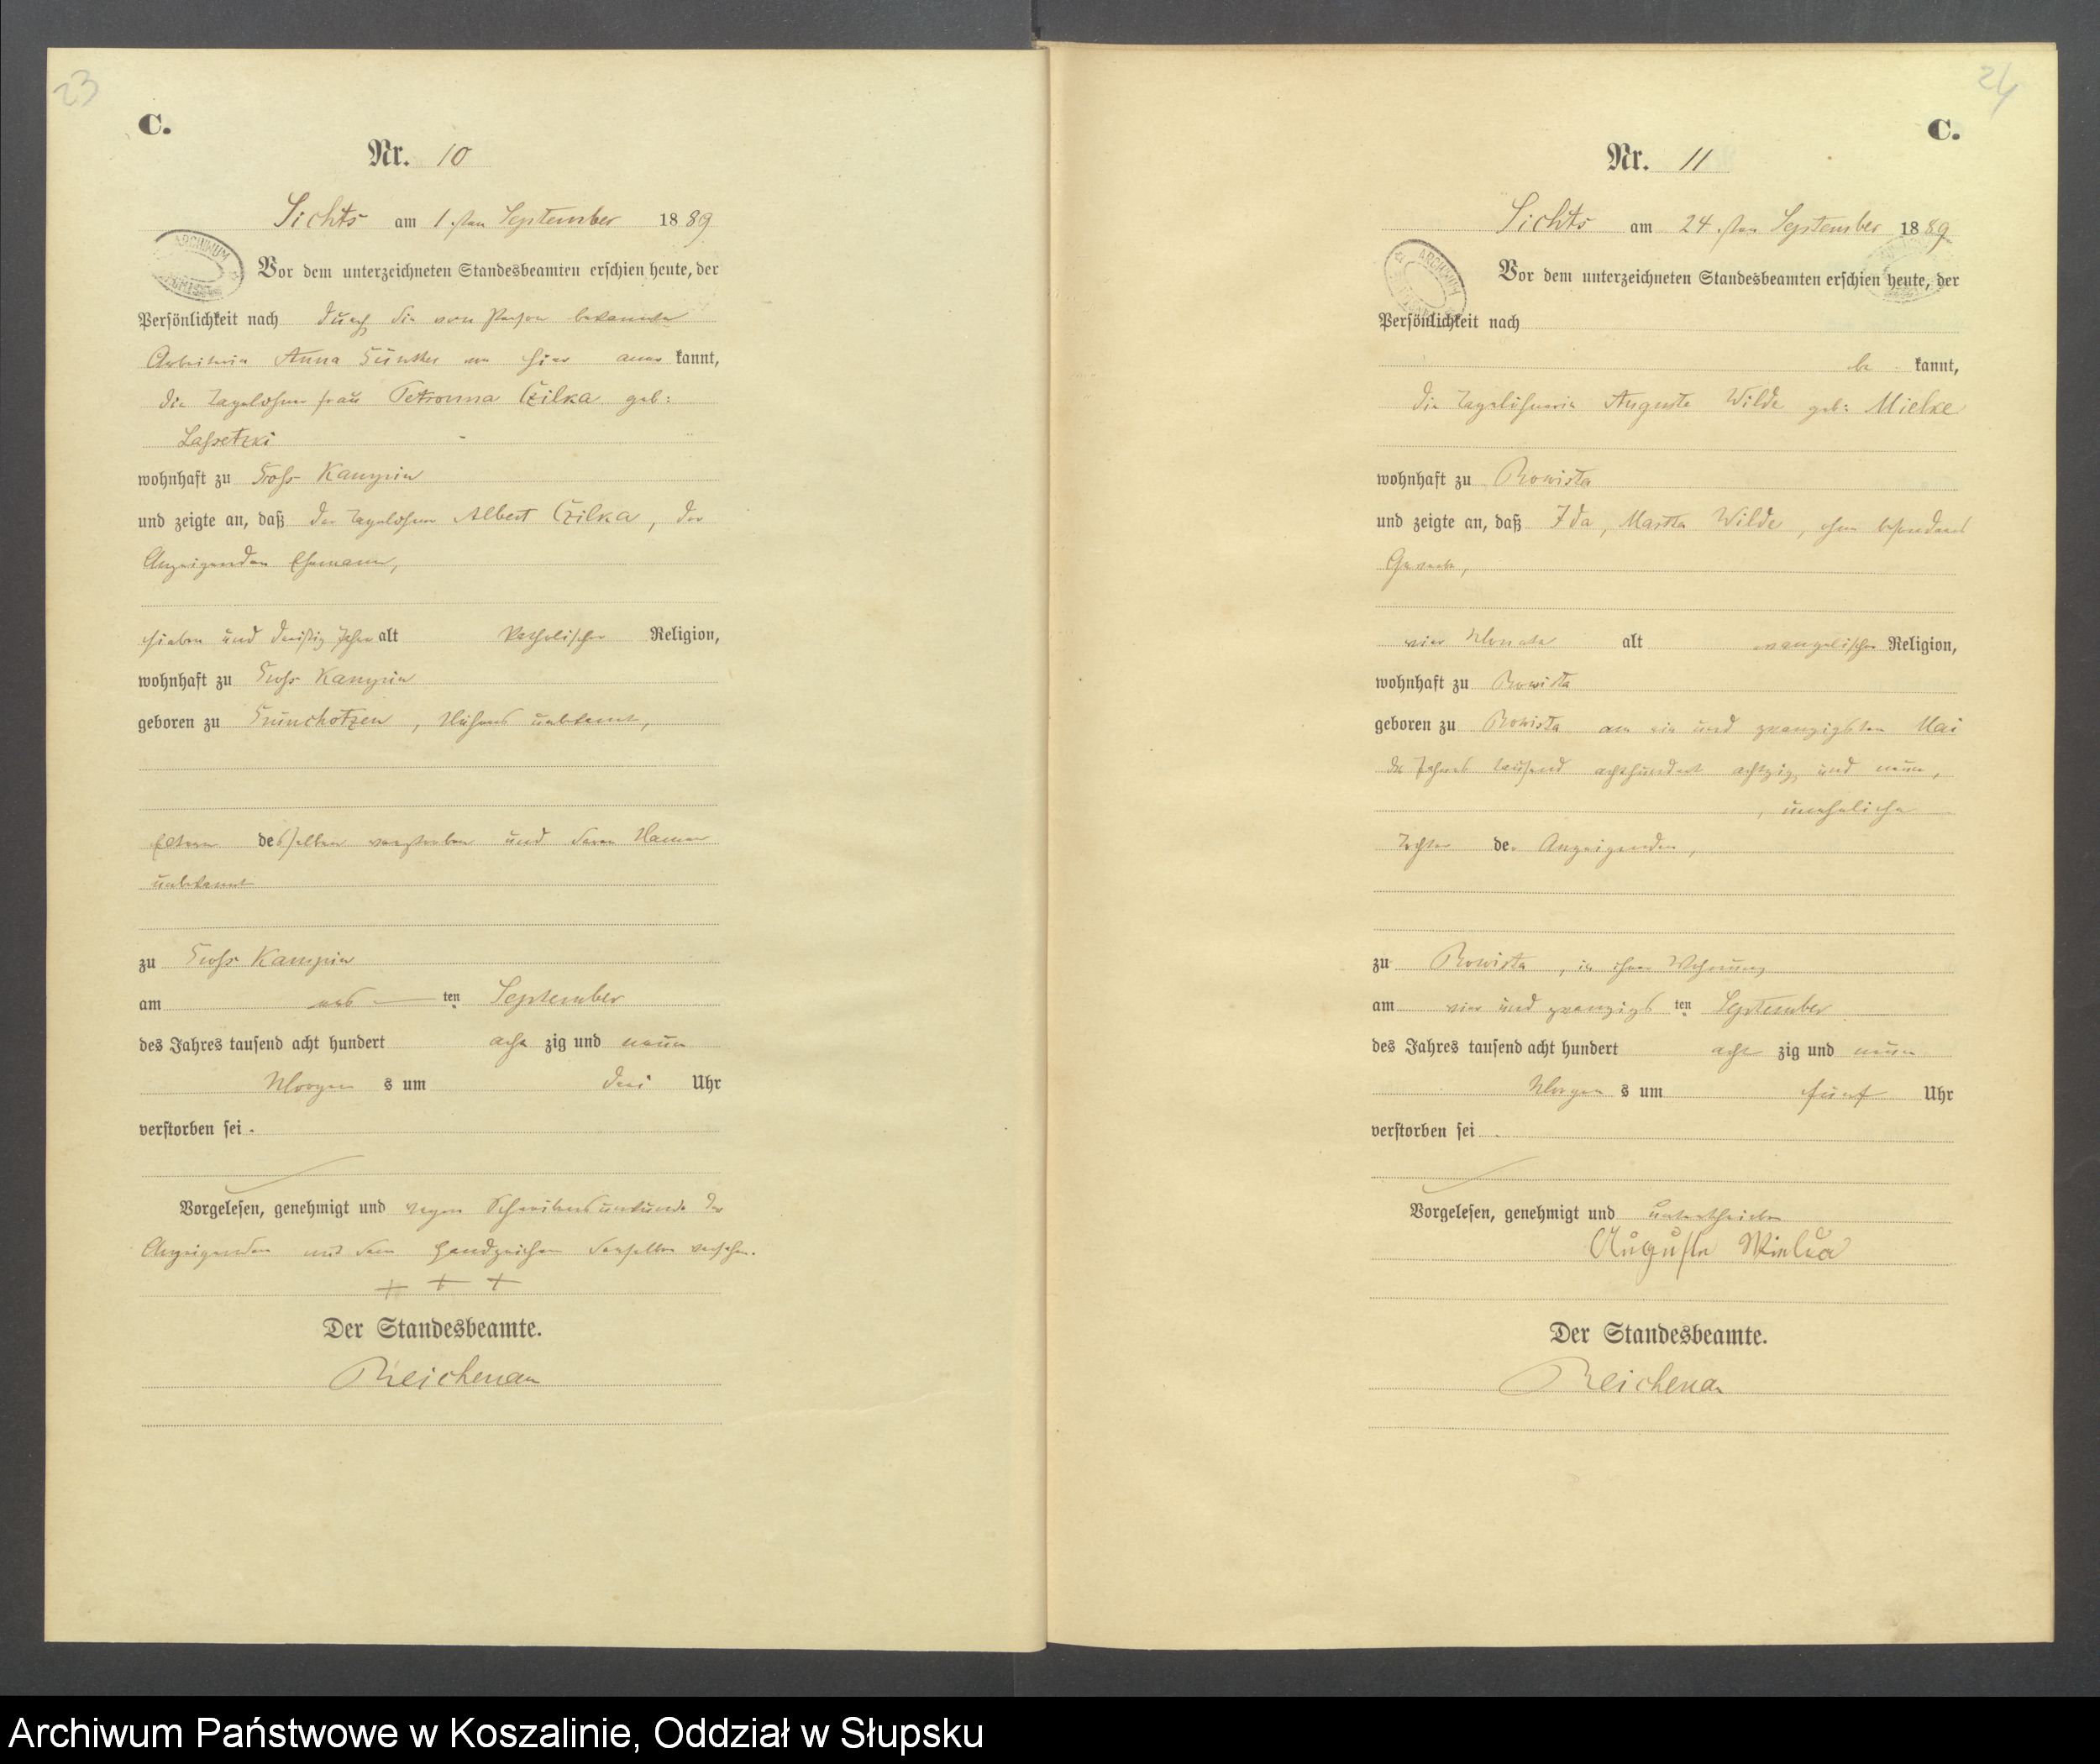 23
C.
Nr. 10
Sichts am 1. ten September 1889
ARCHIWUM
Vor dem unterzeichneten Standesbeamten erschien heute, der
Persönlichkeit nach durch die von Person bekannte
Arbeiterin Anna Günther von hier aner kannt,
die Tagelöhnerfrau Petronna Czilka geb:
wohnhaft zu Gross Kanzin
und zeigte an, daß der Tagelöhner Albert Czilka, der
Anzeigenden Ehemann,
sieben und dreißig Jahre alt katholischer Religion,
wohnhaft zu Gross Kanzin
geboren zu Grünchotzen, Näheres unbekannt,
Eltern desselben verstorben und deren Namen
unbekannt
zu Gross Kanzin
am ers ten September
des Jahres tausend acht hundert acht zig und neun
Morgen s um drei Uhr
verstorben sei.
Vorgelesen, genehmigt und wegen Schreibensunkunde der
Anzeigenden mit dem Handzeichen derselben versehen.
+ + +
Der Standesbeamte.
Reichenau
24
C.
Nr. 11
Sichts am 24. ten September 1889
ARCHIWUM
Vor dem unterzeichneten Standesbeamten erschien heute, der
Persönlichkeit nach
be kannt,
die Tagelöhnerin Auguste Wilde geb: Mielke
wohnhaft zu Rowista
und zeigte an, daß Ida, Martha Wilde, ohne besonderes
Gewerbe,
vier Monate alt evangelischer Religion,
wohnhaft zu Rowista
geboren zu Rowista am ein und zwanzigsten Mai
des Jahres tausend achthundert achtzig und neun,
, uneheliche
Tochter der Anzeigenden,
zu Rowista, in ihrer Wohnung
am vier und zwanzigs ten September
des Jahres tausend acht hundert acht zig und neun
Morgen s um fünf Uhr
verstorben sei.
Vorgelesen, genehmigt und unterschrieben
Auguste Mielke
Der Standesbeamte.
Reichenau
Archiwum Państwowe w Koszalinie, Oddział w Słupsku